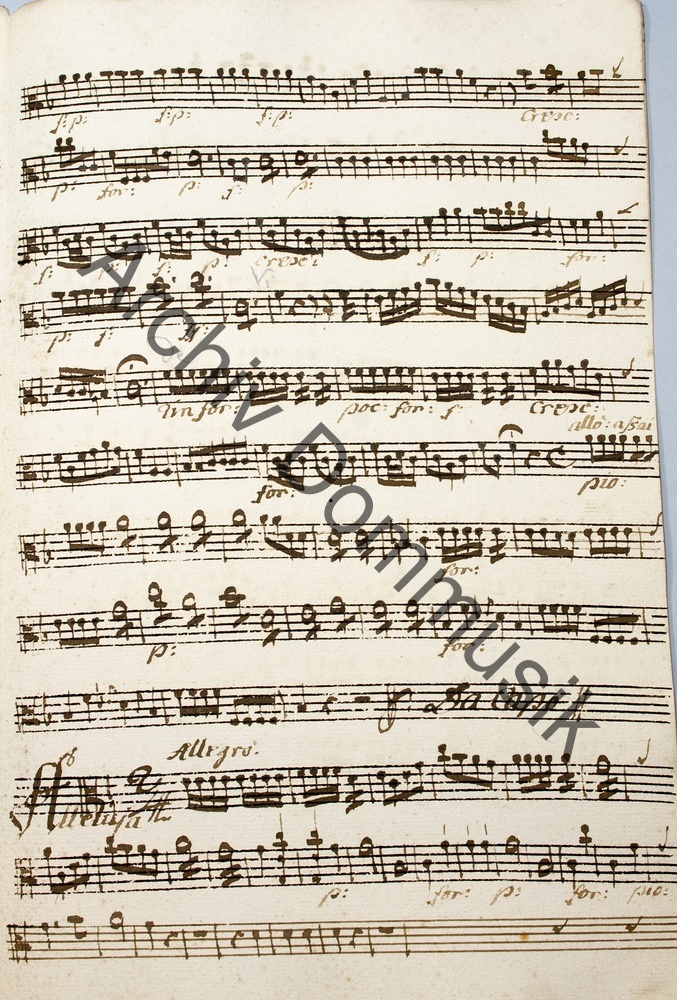 f: p: f: p: f: p: Cresc:
p: for: p: f: p:
f: p: f: p: cresc: f: p: for:
p: f: ff:
un for: poc: for: f: Cresc:
allo: assai
for: pio:
for:
p: for:
Da Capo
Allegro.
Alleluja
p: for: p: for: pio:
Archiv Dommusik